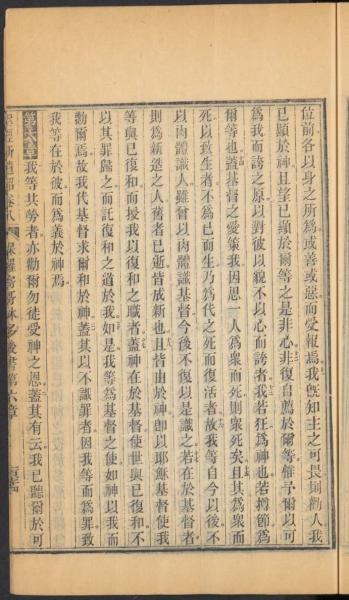 位前各以身之所爲或善或惡而受報焉我旣知主之可畏則勸人我
已顯於神且望已顯於爾等之是非心非復自薦於爾等惟予爾以可
爲我而誇之原以對彼以貌不以心而誇者我若狂爲神也若撙節爲
爾等也蓋基督之愛策我因思一人爲衆而死則衆死矣且其爲衆而
死以致生者不爲己而生乃爲代之死而復活者故我等自今以後不
以肉體識人雖曾以肉體識基督今後不復以是識之若在於基督者
則爲新造之人舊者已逝皆成新也且皆由於神卽以耶穌基督使我
等與己復和而授我以復和之職者蓋神在於基督使世與己復和不
以其罪歸之而託復和之道於我如是我等爲基督之使如神以我而
勸爾焉故我代基督求爾和於神蓋其以不識罪者因我等而爲罪致
我等在於彼而爲義於神焉
第六章我等共勞者亦勸爾勿徒受神之恩蓋其有云我已聽爾於可
聖經新遺詔卷八 保羅寄哥林多後書第六章